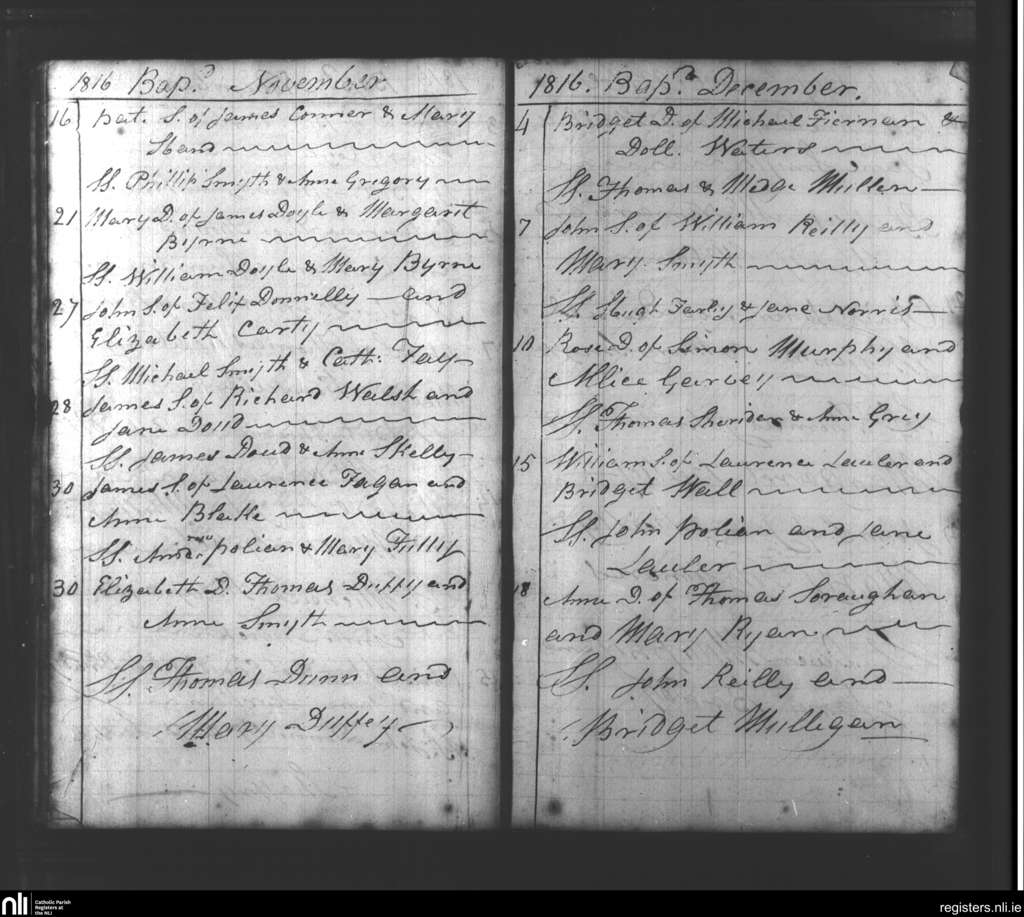 1816 Bap.d November
16 Bat. S. of James Conner & Mary
Hand
SS. Phillip Smyth & Anne Gregory
21 Mary D. of James Doyle & Margarit
Byrne
SS. William Doyle & Mary Byrne
27 John S. of Felix Donnelly and
Elizabeth Carty
SS. Michael Smyth & Cath: Fay
28 James S. of Richard Walsh and
Jane Doud
SS. James Doud & Anne Skelly
30 James S. of Laurence Fagan and
Anne Blake
SS. Andrew polian & Mary Fully
30 Elizabeth D. Thomas Duffy and
Anne Smyth
SS. Thomas Dunn and
Mary Duffey
1816. Bap.d December.
4 Bridget D. of Michael Fiernan &
Doll. Waters
SS. Thomas & Madge Mullen
7 John S. of William Reilly and
Mary Smyth
SS. Hugh Farly & Jane Norris
10 Rose D. of Simon Murphy and
Allice Garvey
SS. Thomas Sheridan & Anne Grey
15 William S. of Laurence Lauler and
Bridget Wall
SS. John polian and Jane
Lauler
18 Anne D. of Thomas Soraughan
and Mary Ryan
SS. John Reilly and
Bridget Mulligan
nli Catholic Parish
Registers at
the NLI
registers.nli.ie